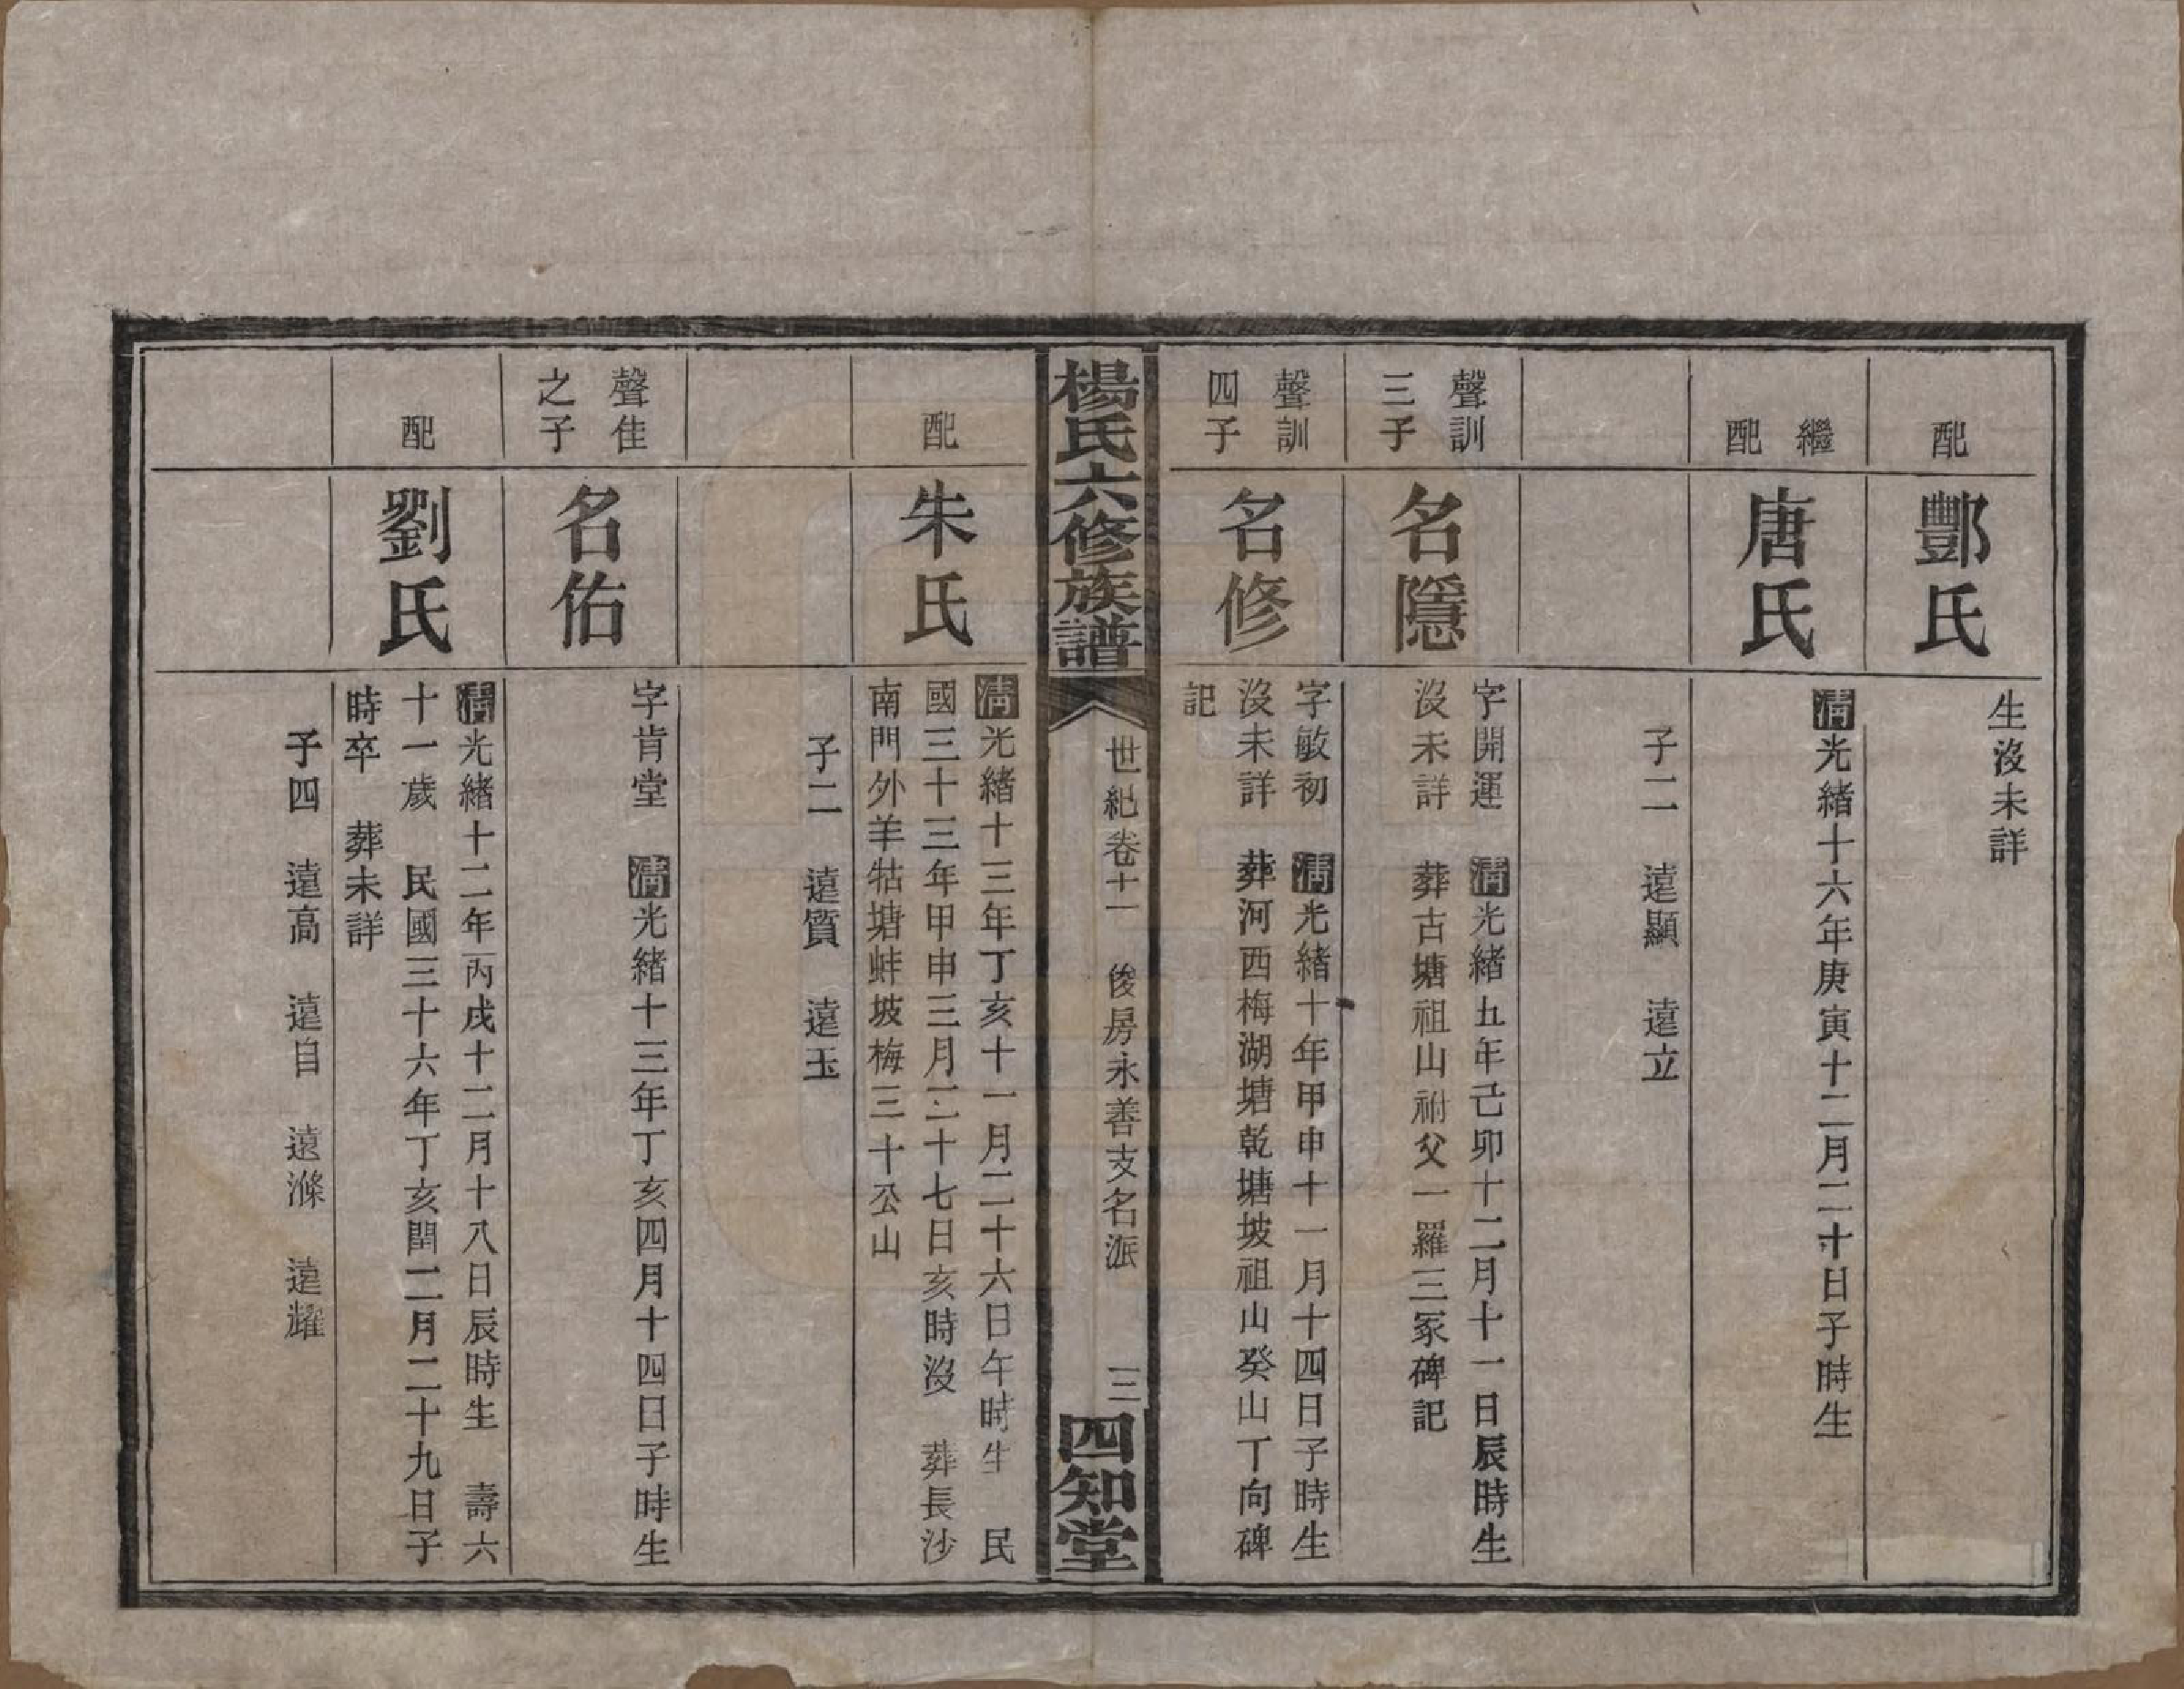 配
酆氏
生沒未詳
繼
配
唐氏
清光緒十六年庚寅十二月二十日子時生
子二　遠顯　遠立
聲訓
三子
名隱
字開運　清光緒五年己卯十二月十一日辰時生
沒未詳　葬古塘祖山祔父一羅三冢碑記
聲訓
四子
名修
字敏初　清光緒十年甲申十一月十四日子時生
沒未詳　葬河西梅湖塘乾塘坡祖山癸山丁向碑
記
楊氏六修族譜
世紀卷十一　俊房永善支名派　三
四知堂
配
朱氏
清光緒十三年丁亥十一月二十六日午時生　民
國三十三年甲申三月二十七日亥時沒　葬長沙
南門外羊牯塘蚌坡梅三十公山
子二　遠質　遠玉
聲佳
之子
名佑
字肯堂　清光緒十三年丁亥四月十四日子時生
配
劉氏
清光緒十二年丙戌十二月十八日辰時生　壽六
十一歲　民國三十六年丁亥閏二月二十九日子
時卒　葬未詳
子四　遠高　遠自　遠滌　遠耀